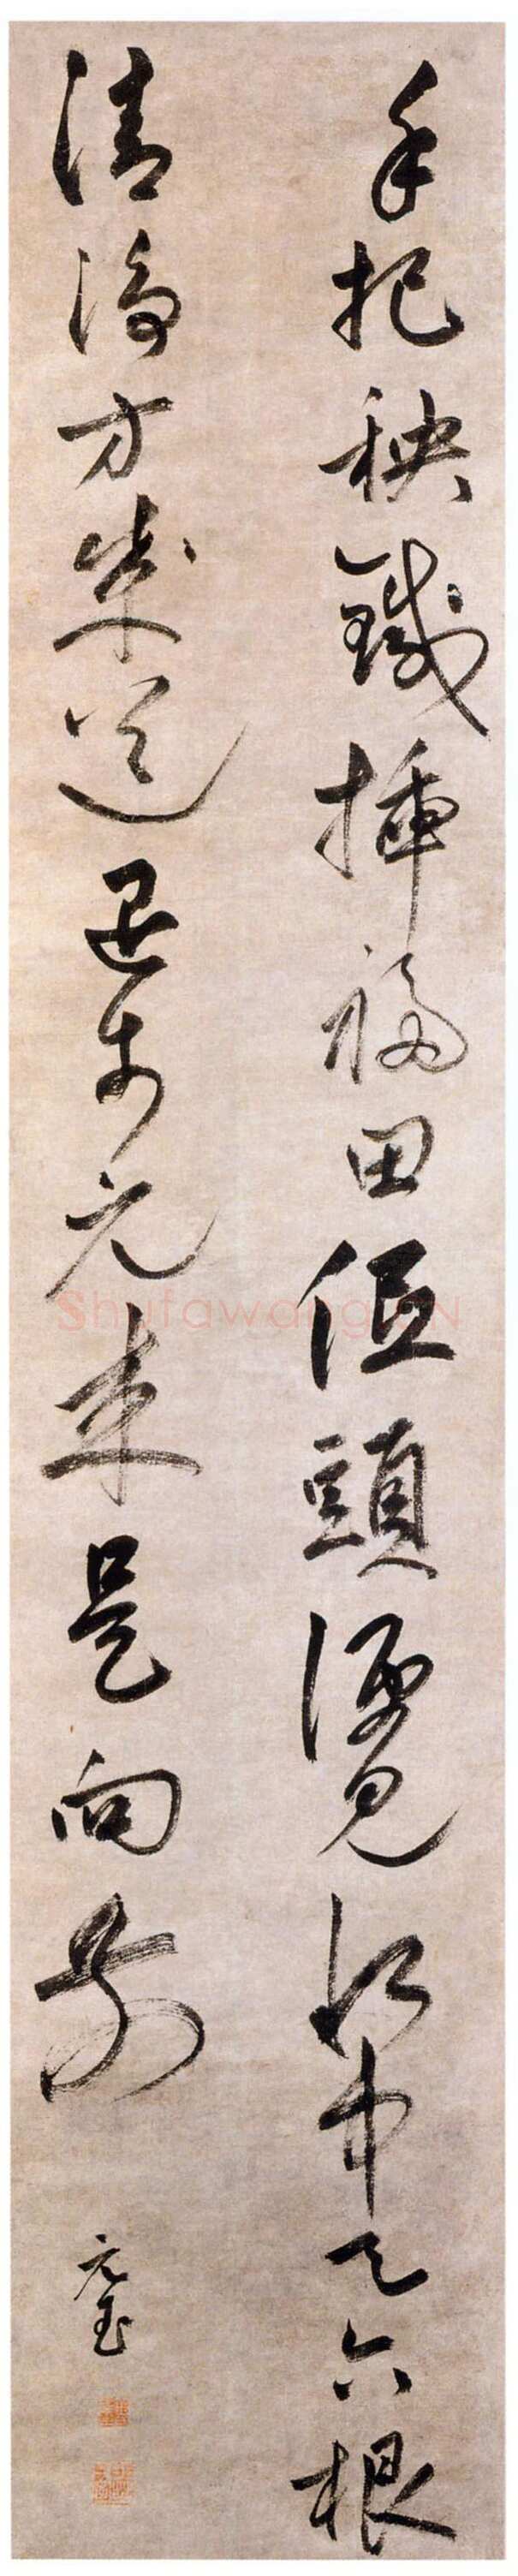 手把秧鍼插福田低頭便見水中天六根
清淨方成道退步元來是向前
元玉
Shufawang.CN